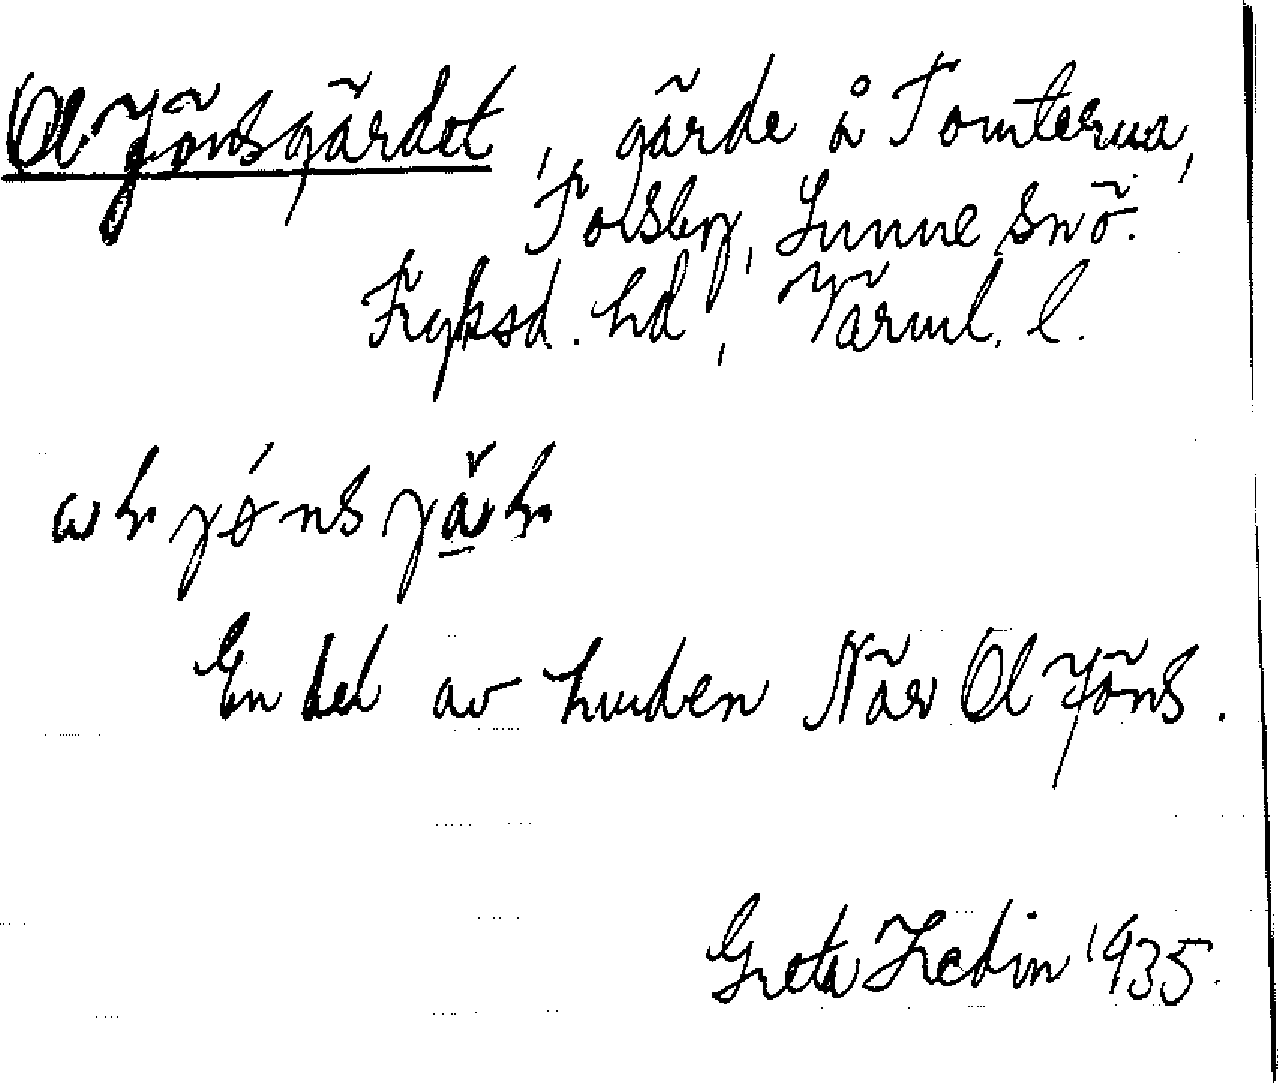 Ol Jönsgärdet, gärde å Tomterna,
Tolsby, Sunne snö.
Fryksd. hd, Värml. l.
En del av lunden När Ol Jöns.
Greta Hedin 1935.